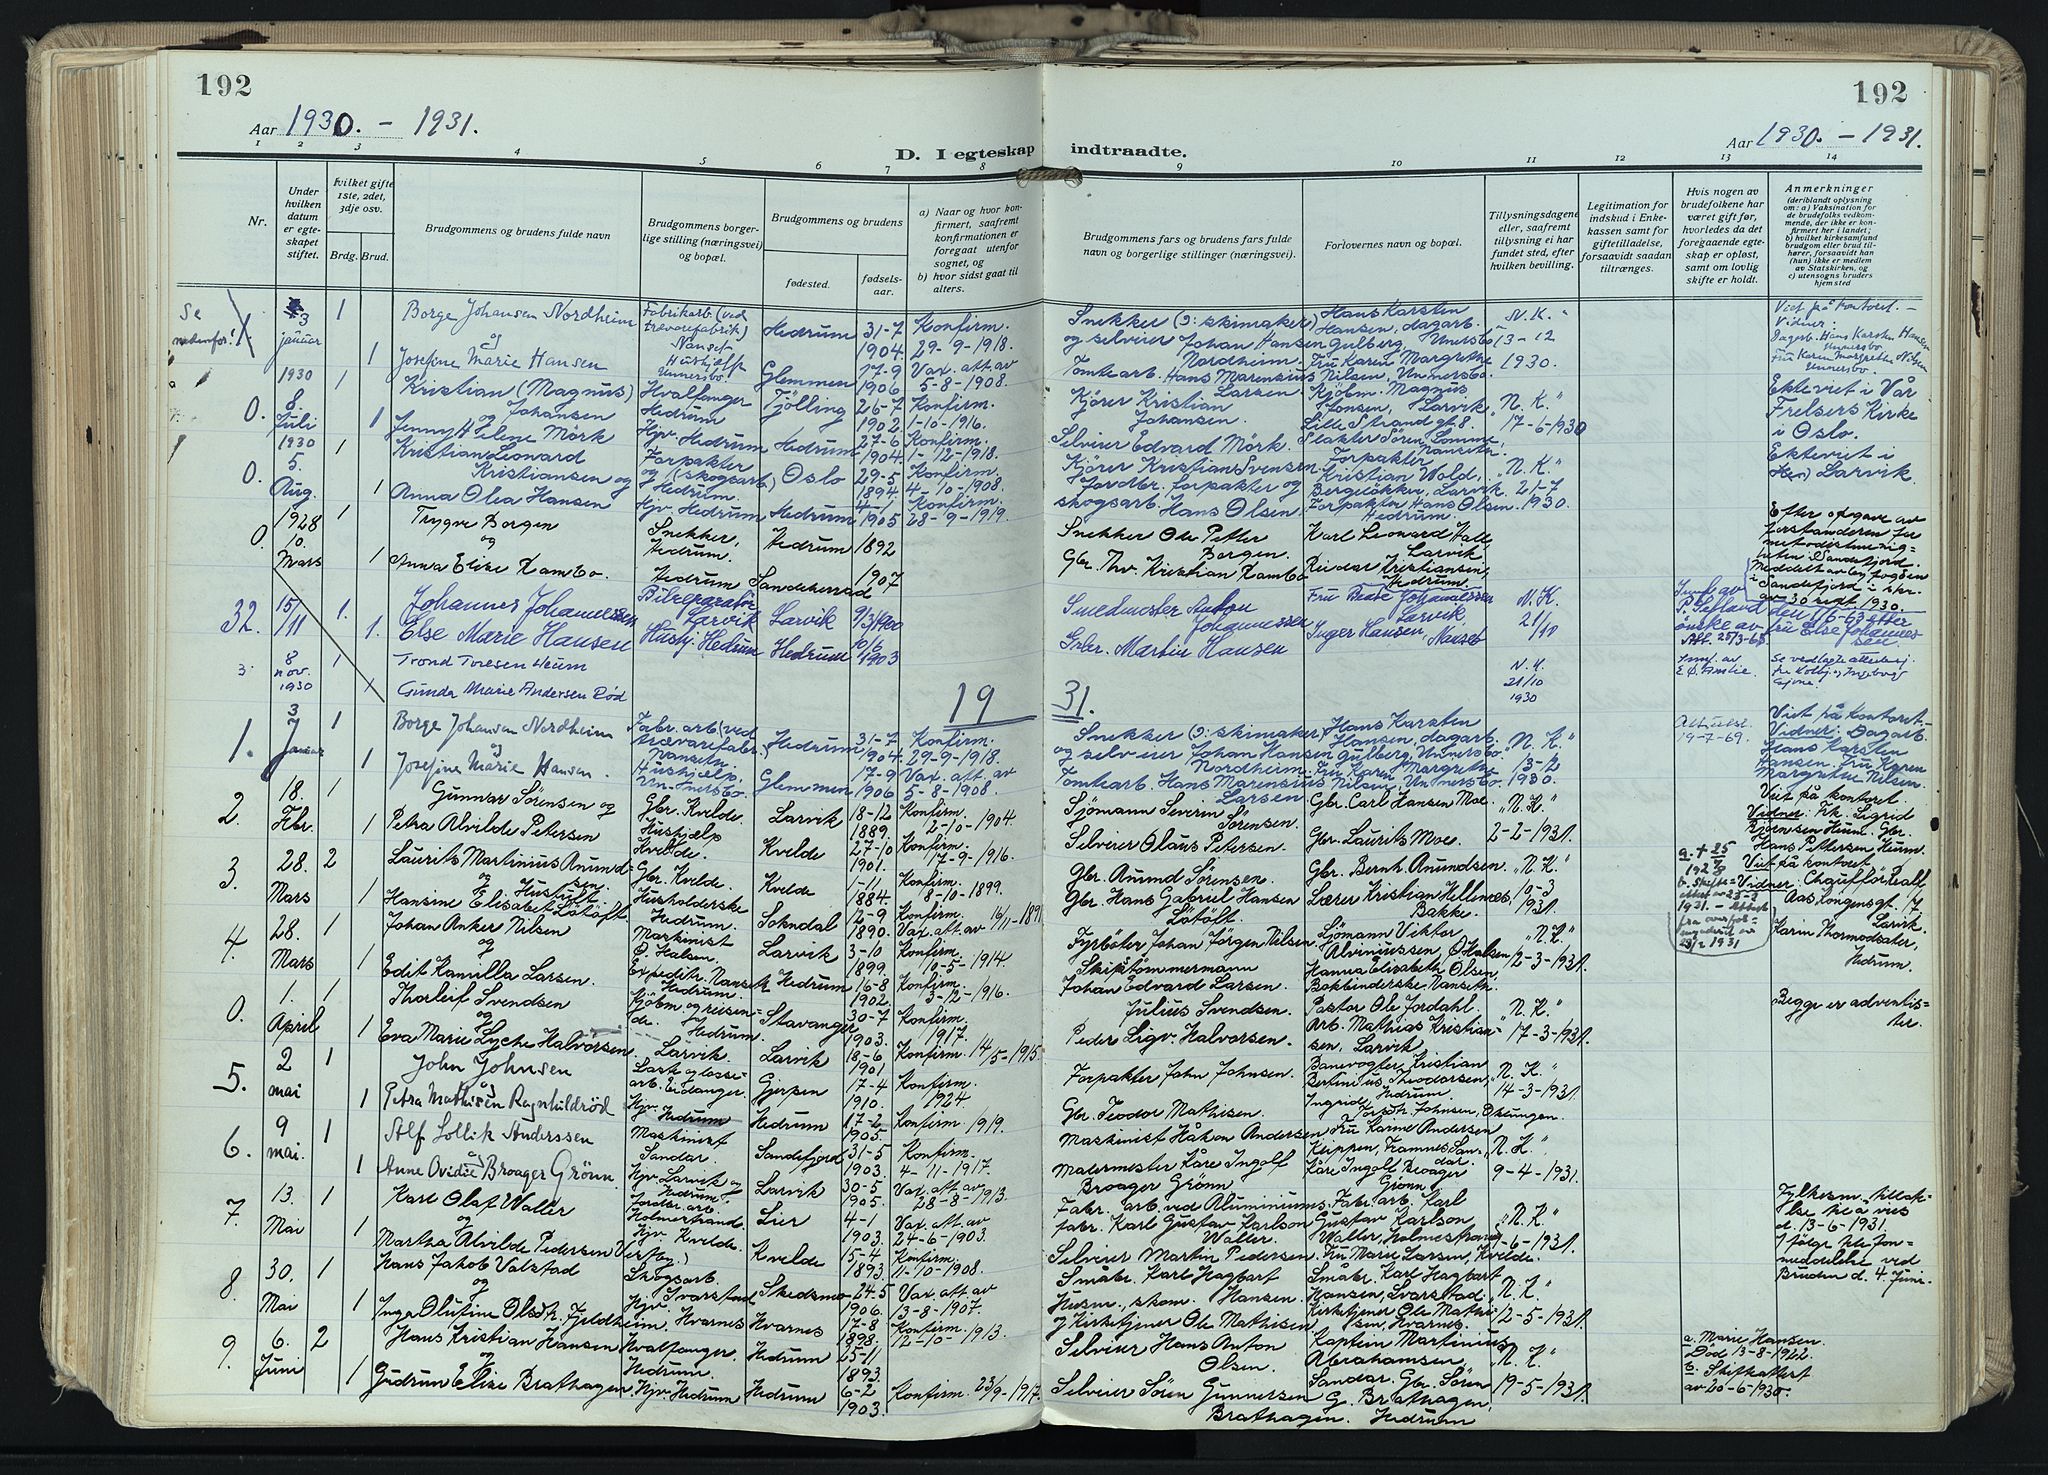 192
192
Aar 1930. - 1931.
Aar 1930. - 1931.
D. I egteskap indtraadte.
1 2 3 4 5 6 7 8 9 10 11 12 13 14
Nr.
Under hvilken datum er egteskapet stiftet.
hvilket gifte 1ste, 2det, 3dje osv.
Brdg. Brud.
Brudgommens og brudens fulde navn
Brudgommens borgerlige stilling (næringsvei) og bopæl.
Brudgommens og brudens
fødested.
fødselsaar.
a) Naar og hvor konfirmert, saafremt konfirmationen er foregaat utenfor sognet, og
b) hvor sidst gaat til alters.
Brudgommens fars og brudens fars fulde navn og borgerlige stillinger (næringsvei).
Forlovernes navn og bopæl.
Tillysningsdagene eller, saafremt tillysning ei har fundet sted, efter hvilken bevilling.
Legitimation for indskud i Enkekassen samt for giftetilladelse, forsaavidt saadan tiltrænges.
Hvis nogen av brudefolkene har været gift før, hvorledes da det foregaaende egteskap er opløst, samt om lovlig skifte er holdt.
Anmerkninger
(deriblandt oplysning om: a) Vaksination for de brudefolks vedkommende, der ikke er konfirmert her i landet; b) hvilket kirkesamfund brudgom eller brud tilhører, forsaavidt han (hun) ikke er medlem av Statskirken, og c) utensogns bruders hjemsted
Se nedenfor!
3 januar 1 Borge Johansen Nordheim Fabrikarb. (ved trævarefabrik) Nanset Hedrum 31-7 1904. Konfirm. 29-9-1918.
og
1 Josefine Marie Hansen Hushjelp Unnersbo. Glemmen 17-9 1906 Vax. att. av 5-8-1908.
Snekker (ɔ: skimaker) og selveier Johan Hansen Nordheim.
Tomtearb. Hans Marensius Larsen
Hans Karsten Hansen, dagarb. Gulberg, Unnersbo
Fru Karen Margrethe Nilsen, Unnersbo.
N. K. 13-12 1930.
Viet på kontoret. -
Vidner:
Dagarb. Hans Karsten Hansen Unnersbo
Fru Karen Margrethe Nilsen Unnersbo.
1930 8 Juli
0. 1 Kristian (Magnus) Johansen Hvalfanger Hedrum Tjölling 26-7 1902 Konfirm. 1-10-1916.
og
1 Jenny Helene Mörk Hjv. Hedrum Hedrum 27-6 1904 Konfirm. 1-12-1918.
Kjörer Kristian Johansen.
Selveier Edvard Mörk.
Kjöbm. Magnus Jonsen, Larvik
Lille Strandgt 8.
"N. K." 17-6-1930
Ekteviet i Vår Frelsers Kirke i Oslo.
1930 5. Aug.
0. 1 Kristian Leonard Kristiansen og Forpakter og (skogsarb.) Hedrum. Oslo 29-5 1894. Konfirm. 4-10-1908.
1 Anna Olea Hansen Hjv. Hedrum Hedrum 4-1 1905 Konfirm. 28-9-1919.
Kjörer Kristian Svensen.
Jordbr. forpakter og skogsarb. Hans Olsen
Forpakter Kristian Wold, Larvik.
Forpakter Hans Olsen Hedrum.
"N. K." 21-7 1930.
Ekteviet i Larvik.
1928 10. Mars
0. 1 Trygve Borgen Snekker, Hedrum. Hedrum 1892
og
1 Anna Elise Kambo. Hedrum Sandeherred 1907
Snekker Ole Petter Borgen.
Gbr. Thv. Kristian Kambo
Karl Leonard Hall, Larvik
Reidar Kristiansen, Hedrum.
Efter opgave av forstanderen for metodistmenigheten Sandefjord. Meddelt av byfogden i Sandefjord i skr. av 30 sept 1930.
32. 15/11 1. Johannes Johannessen Bilreparatör Larvik Larvik 9/3 1900
1. Else Marie Hansen Hushj. Hedrum Hedrum 10/6 1903
Smedmester Anton Johannessen
Gbr. Martin Hansen
Fru Beate Johannessen Larvik
Inger Hansen, Nanset
N. K. 21/10
den 11/6-63 efter önske av fru Else Johannessen
Att. 25/3-65
3. 8 nov. 1930 1 Trond Toresen Heum
1 Gunda Marie Andersen Röd
N. K. 21/10 1930
Se vedlagte attester
19 31.
1. 3 Januar 1 Borge Johansen Nordheim Fabr. arb. (ved trævarefabr.) Nanseth Hedrum 31-7 1904. Konfirm. 29-9-1918.
og
1 Josefine Marie Hansen. Hushjelp. Unnersbo. Glemmen 17-9 1906 Vax. att. av 5-8-1908.
Snekker (ɔ: skimaker) og selveier Johan Hansen Nordheim.
Tomtearb. Hans Marensius Larsen
Hans Karsten Hansen, dagarb. Gulberg, Unnersbo.
Fru Karen Margrethe Nilsen, Unnersbo.
"N. K." 13-12 1930.
19-7-69.
Viet på kontoret.
Vidner: Dagarb. Hans Karsten Hansen. Fru Karen Margrethe Nilsen
2. 18. Febr. 1 Gunnar Sörensen og Gbr. Kvelde. Larvik 18-12 1889. Konfirm. 2-10-1904.
1 Petra Alvilde Petersen Hushjelp Kvelde. Kvelde 27-10 1901. Konfirm. 17-9-1916.
Sjömann Severin Sörensen.
Selveier Olaus Petersen
Gbr. Carl Hansen Moe.
Gbr. Laurits Moe.
"N. K." 2-2-1931.
Viet på kontoret.
Vidner: Frk. Sigrid Björnsen Heum. Gbr. Hans Pettersen Heum.
3. 28. Mars 2 Laurits Martinius Anundsen. Gbr. Kvelde. Kvelde 1-11 1884. Konfirm. 8-10-1899.
og
1 Hansine Elisabet Lötoft Husholderske Hedrum. Sokndal 12-9 1890. Konfirm. Vax. att. av 16/1-1891
Gbr. Anund Sörensen.
Gbr. Hans Gabriel Hansen Lötoft.
Gbr. Bernh. Anundsen.
Lærer Kristian Hellenes, Bakke.
"N. K." 10-3 1931.
Viet på kontoret
Vidner: Chauffør Aas, Kongensgt. 17 Larvik.
Karin Thormodsæter, Hedrum.
4. 28. Mars 1 Johan Anker Nilsen Maskinist Ö. Halsen. Larvik 3-10 1899. Konfirm. 10-5-1914.
og
1 Edit Kamilla Larsen. Expeditr. Nanset, Hedrum. Hedrum 16-8 1902. Konfirm. 3-12-1916.
Fyrböter Johan Jörgen Nilsen.
Skibstömmermann Johan Edvard Larsen.
Sjömann Viktor Alvinussen, Ö. Halsen
Hanna Elisabeth Olsen, Bokbinderske, Nanseth.
"N. K." 12-3-1931.
0. 1. April 1 Thorleif Svendsen Kjöbm. og reisende. Stavanger 30-7 1903. Konfirm. 1917.
og
1 Eva Marie Lyche Halvorsen. Hedrum. Larvik. Larvik 18-6 1901 Konfirm. 14/5-1915.
Julius Svendsen.
Peder Ligv. Halvorsen.
Pastor Ole Jordahl.
Arb. Mathias Kristiansen, Larvik
"N. K." 17-3-1931.
Begge er adventister.
5. 2 mai 1 John Johnsen Gjerpen 17-4 1910. Konfirm. 1924.
og
1 Petra Mathisen Ragnhildröd Hjv. Hedrum Hedrum 17-2 1905. Konfirm. 1919.
Forpakter John Johnsen.
Gbr. Teodor Mathisen.
Banevogter Kristian Bertinius Theodorsen, Hedrum.
"N. K." 14-3-1931.
6. 9 mai. 1 Alf Lollik Anderssen Maskinist Sandar. Sandefjord 31-5 1903. Konfirm. 4-11-1917.
og
1 Anne Ovidie Broager Grönn. Hjv. Larvik og Hedrum Larvik 30-5 1905. Vax. att. av 28-8-1913.
Maskinist Håkon Andersen
Malermester Kåre Ingolf Broager Grönn
Fru Karine Andersen Sandar.
Kåre Ingolf Broager Grönn
"N. K." 9-4-1931.
7. 13. Mai 1 Karl Olaf Waller Holmestrand. Lier 4-1 1903. Vax. att. av 24-6-1903.
og
1 Martha Alvilde Pedersen Hjv. Kvelde. Kvelde 15-4 1893. Konfirm. 11-10-1908.
Fabr. arb. ved Aluminiumsfabr. Karl Gustav Karlson Waller.
Selveier Martin Pedersen.
Fabr. arb. Karl Gustav Karlson Waller, Holmestrand
Fru Marie Larsen, Kvelde.
"N. K." -6-1931.
d. 13-6-1931.
Ifölge meddelelse ved Bruden d. 4. Juni.
8. 30. Mai 1 Hans Jakob Valstad Skogsarb. Svarstad Skedsmo 24-5 1906. Vax. att. av 13-8-1907.
og
1 Inga Olufine Olsdtr. Fjeldheim. Hjv. Hvarnes Hvarnes 17-8 1898. Konfirm. 12-10-1913.
Småbr. Karl Hagbart Hansen.
Kirketjener Ole Mathisen
Småbr. Karl Hagbart Hansen, Svarstad
Kirketjener Ole Mathisen, Hvarnes.
"N. K." 12-5-1931.
9. 6. Juni 2 Hans Kristian Hansen Hvalfanger. Hedrum. Hedrum 25-11 1893.
og
1 Gudrun Elise Brathagen Hjv. Hedrum Hedrum 6-2 1903. Konfirm. 23/9-1917.
Selveier Hans Anton Olsen.
Selveier Sören Gunnersen Brathagen.
Kaptein Martinius Abrahamsen, Sandar.
Gbr. Sören G. Brathagen, Hedrum
"N. K." 19-5-1931.
a. Marie Hansen. Död 13-8-1922.
b. Skifteattest av 20-6-1930.